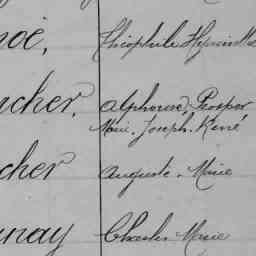 noë, Théophile
ucher, Alphonse, Prosper
Marie, Joseph, René
cher Auguste, Marie
unay Charles Marie